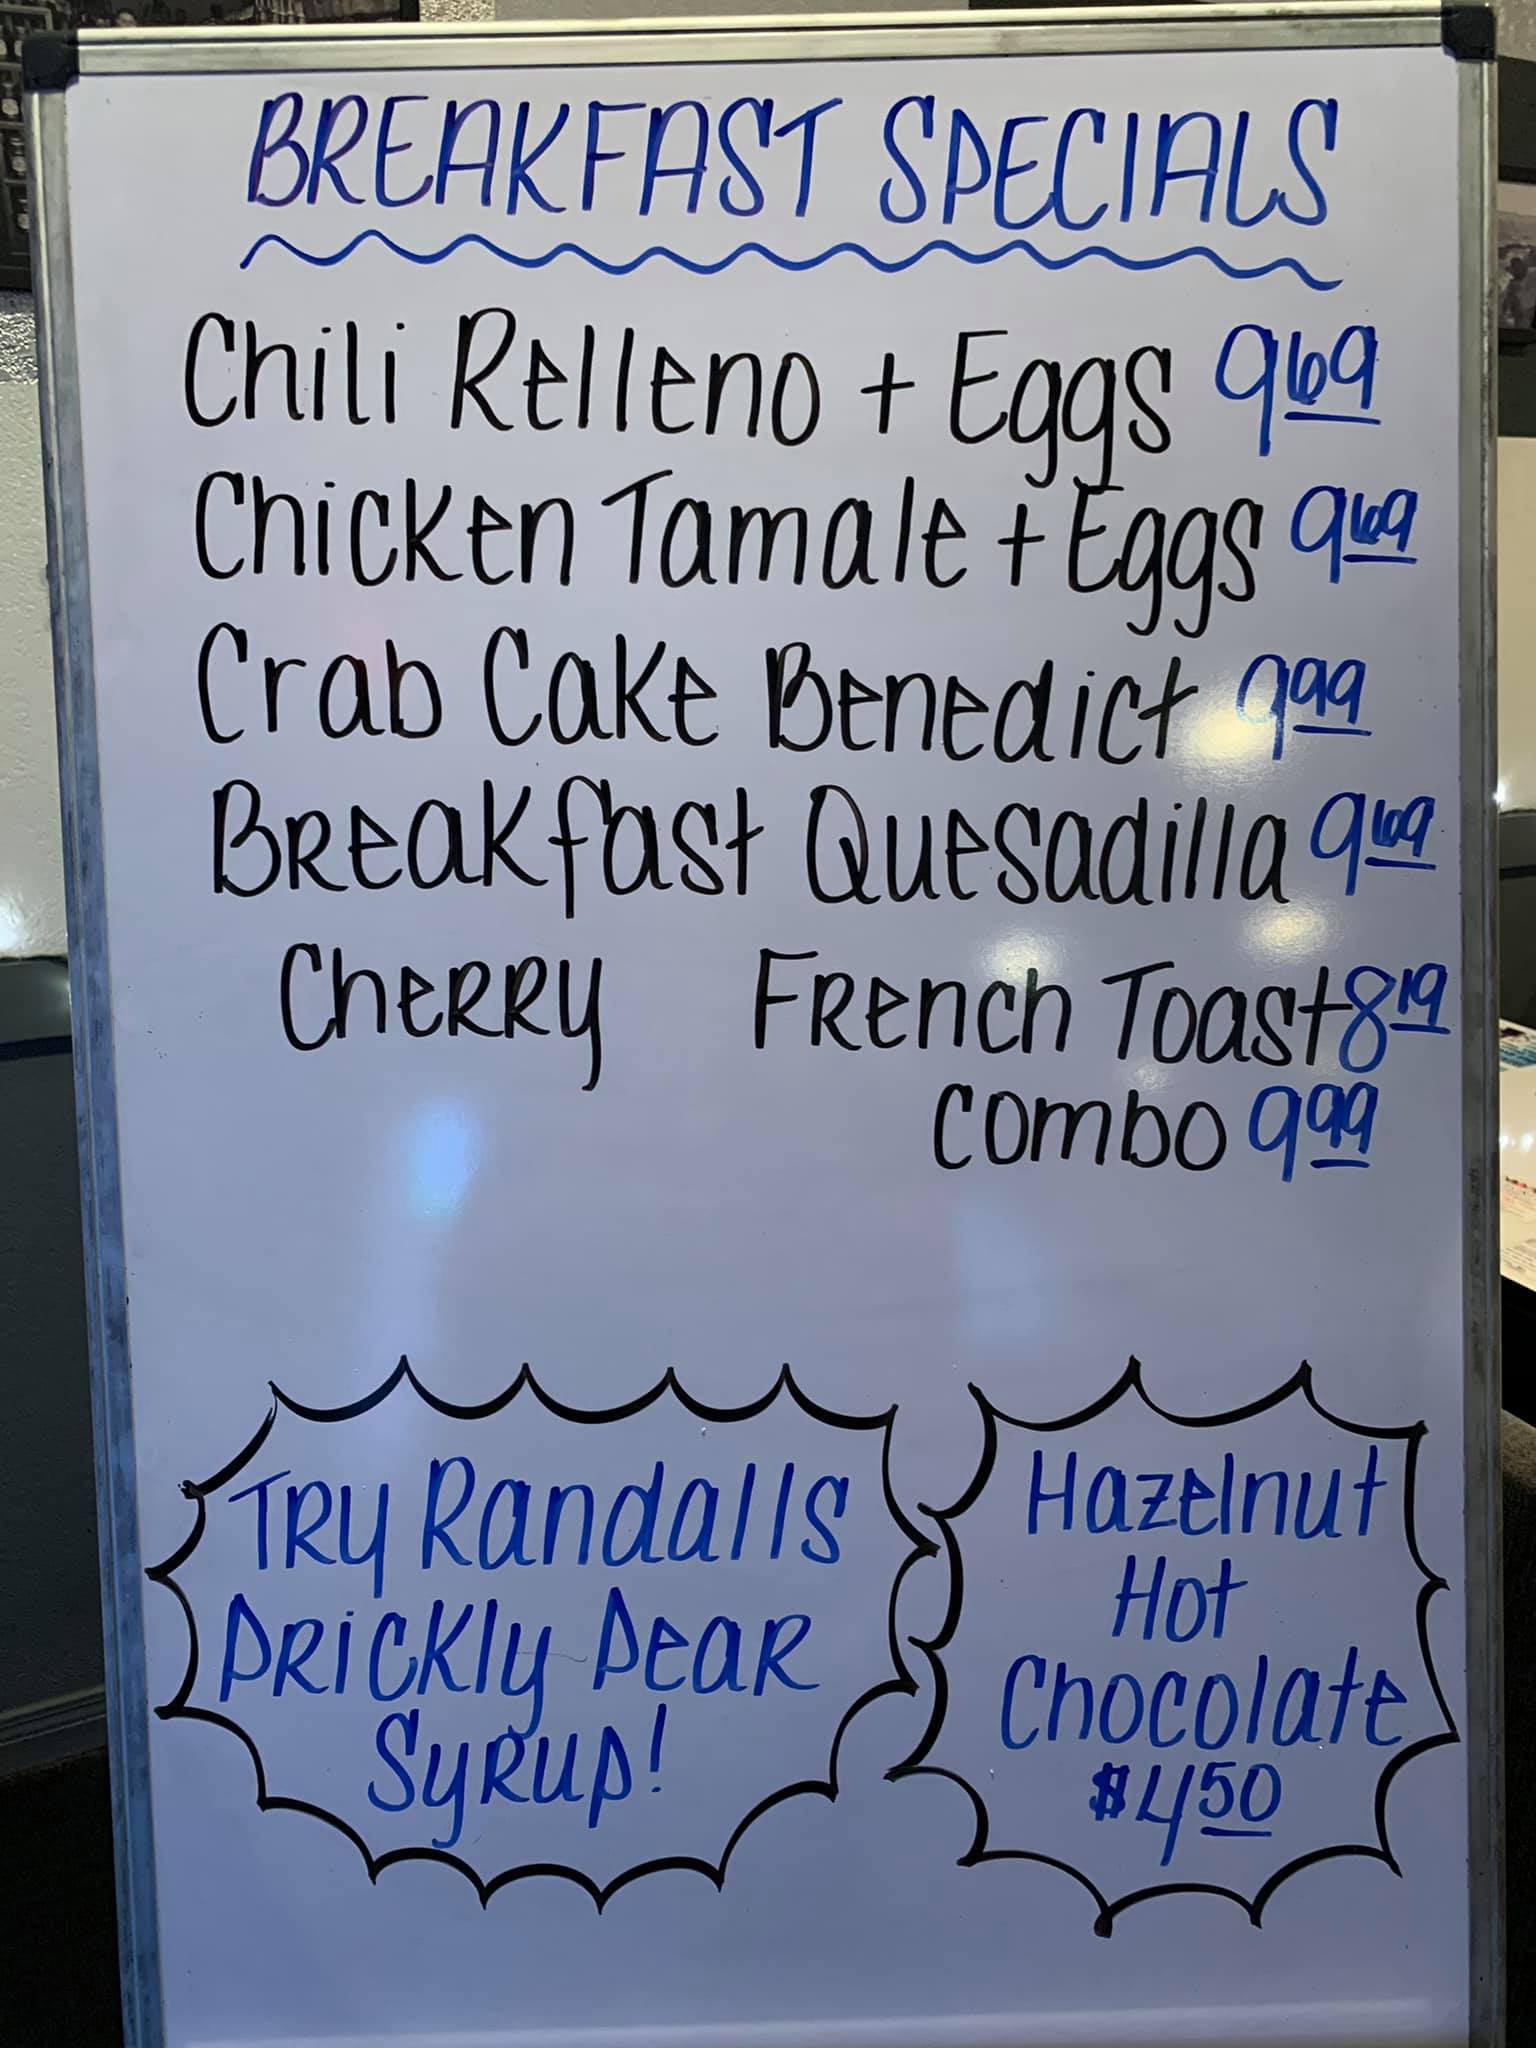 BREAKFAST SPECIALS
Chili Relleno + Eggs 9 69
Chicken Tamale + Eggs 9 69
Crab Cake Benedict 9 99
Breakfast Quesadilla 9 69
Cherry French Toast 8 19
combo 9 99
Try Randalls
Prickly Pear
Syrup!
Hazelnut
Hot
Chocolate
$4 50